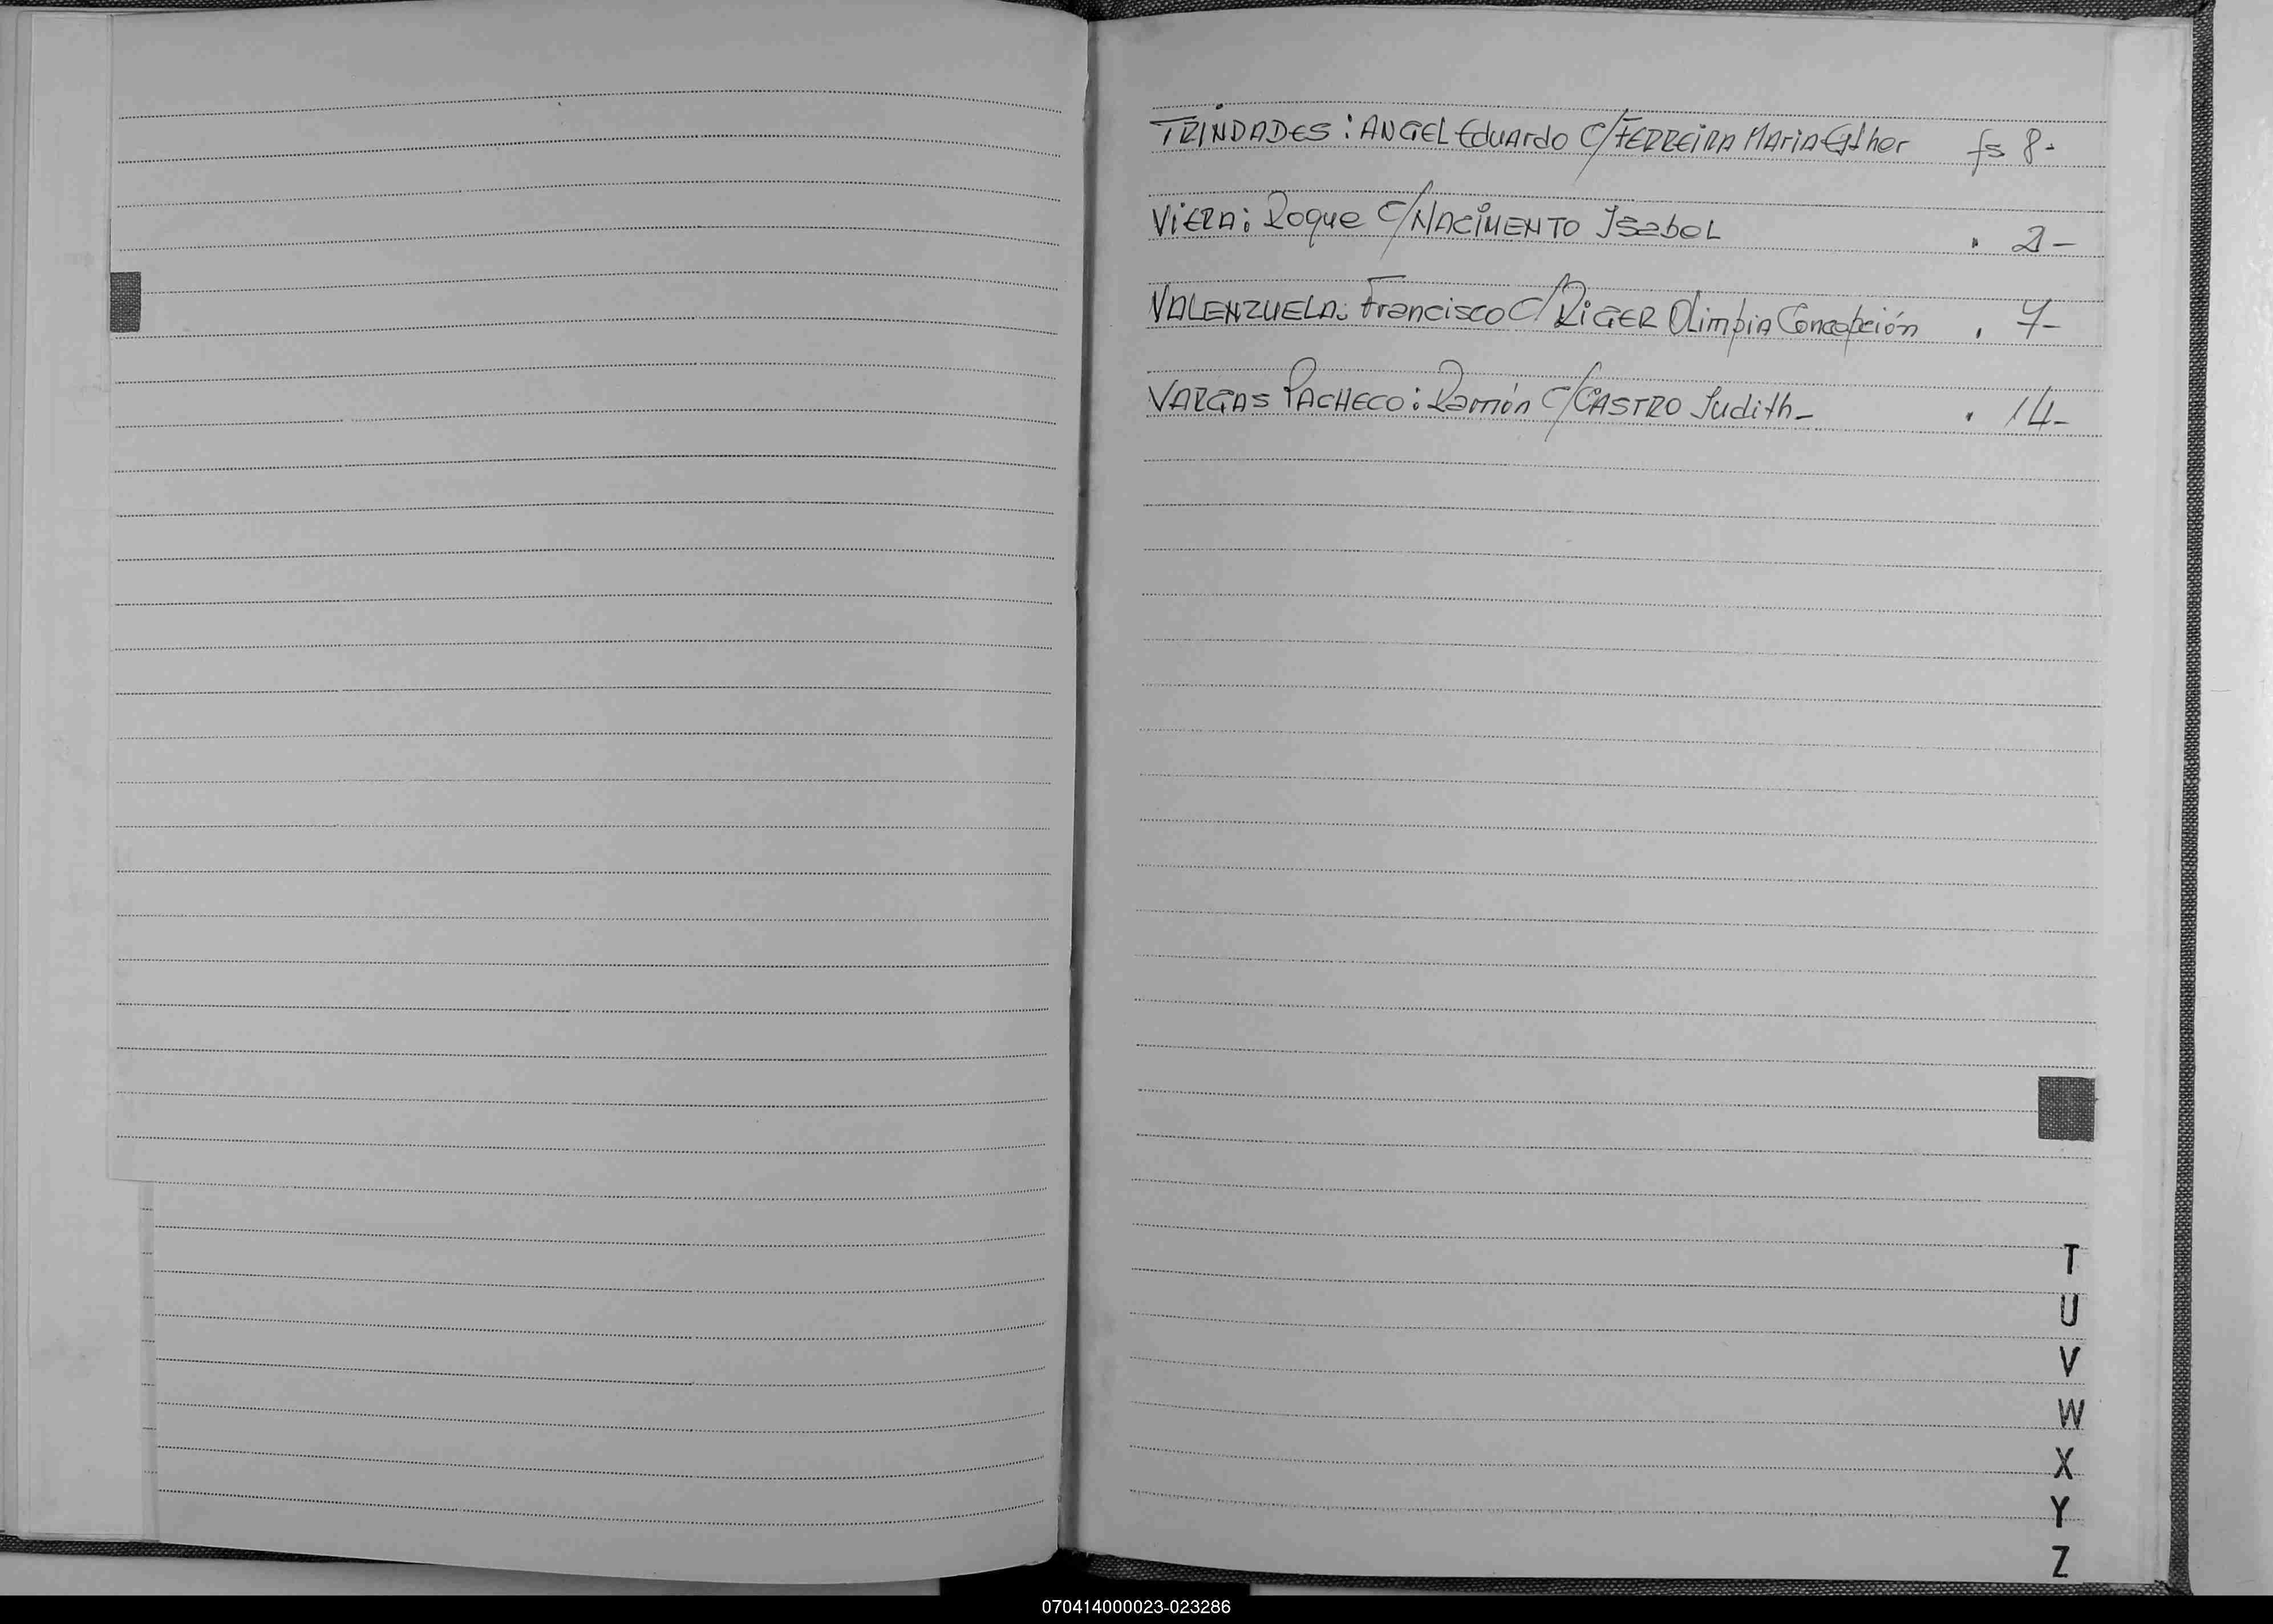 TRINDADES: ANGEL Eduardo C/FERREIRA MARIA Esther fs 8-
VIERA: Roque C/NACIMENTO Isabel " 2-
VALENZUELA: Francisco C/RIGER Olimpia Concepción " 7-
VARGAS PACHECO: Ramón C/CASTRO Judith- " 14-
T
U
V
W
X
Y
Z
070414000023-023286